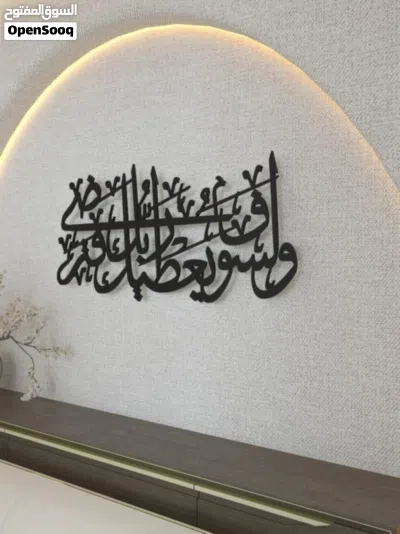 السوق المفتوح
OpenSooq
ولسوف يعطيك ربك فترضى